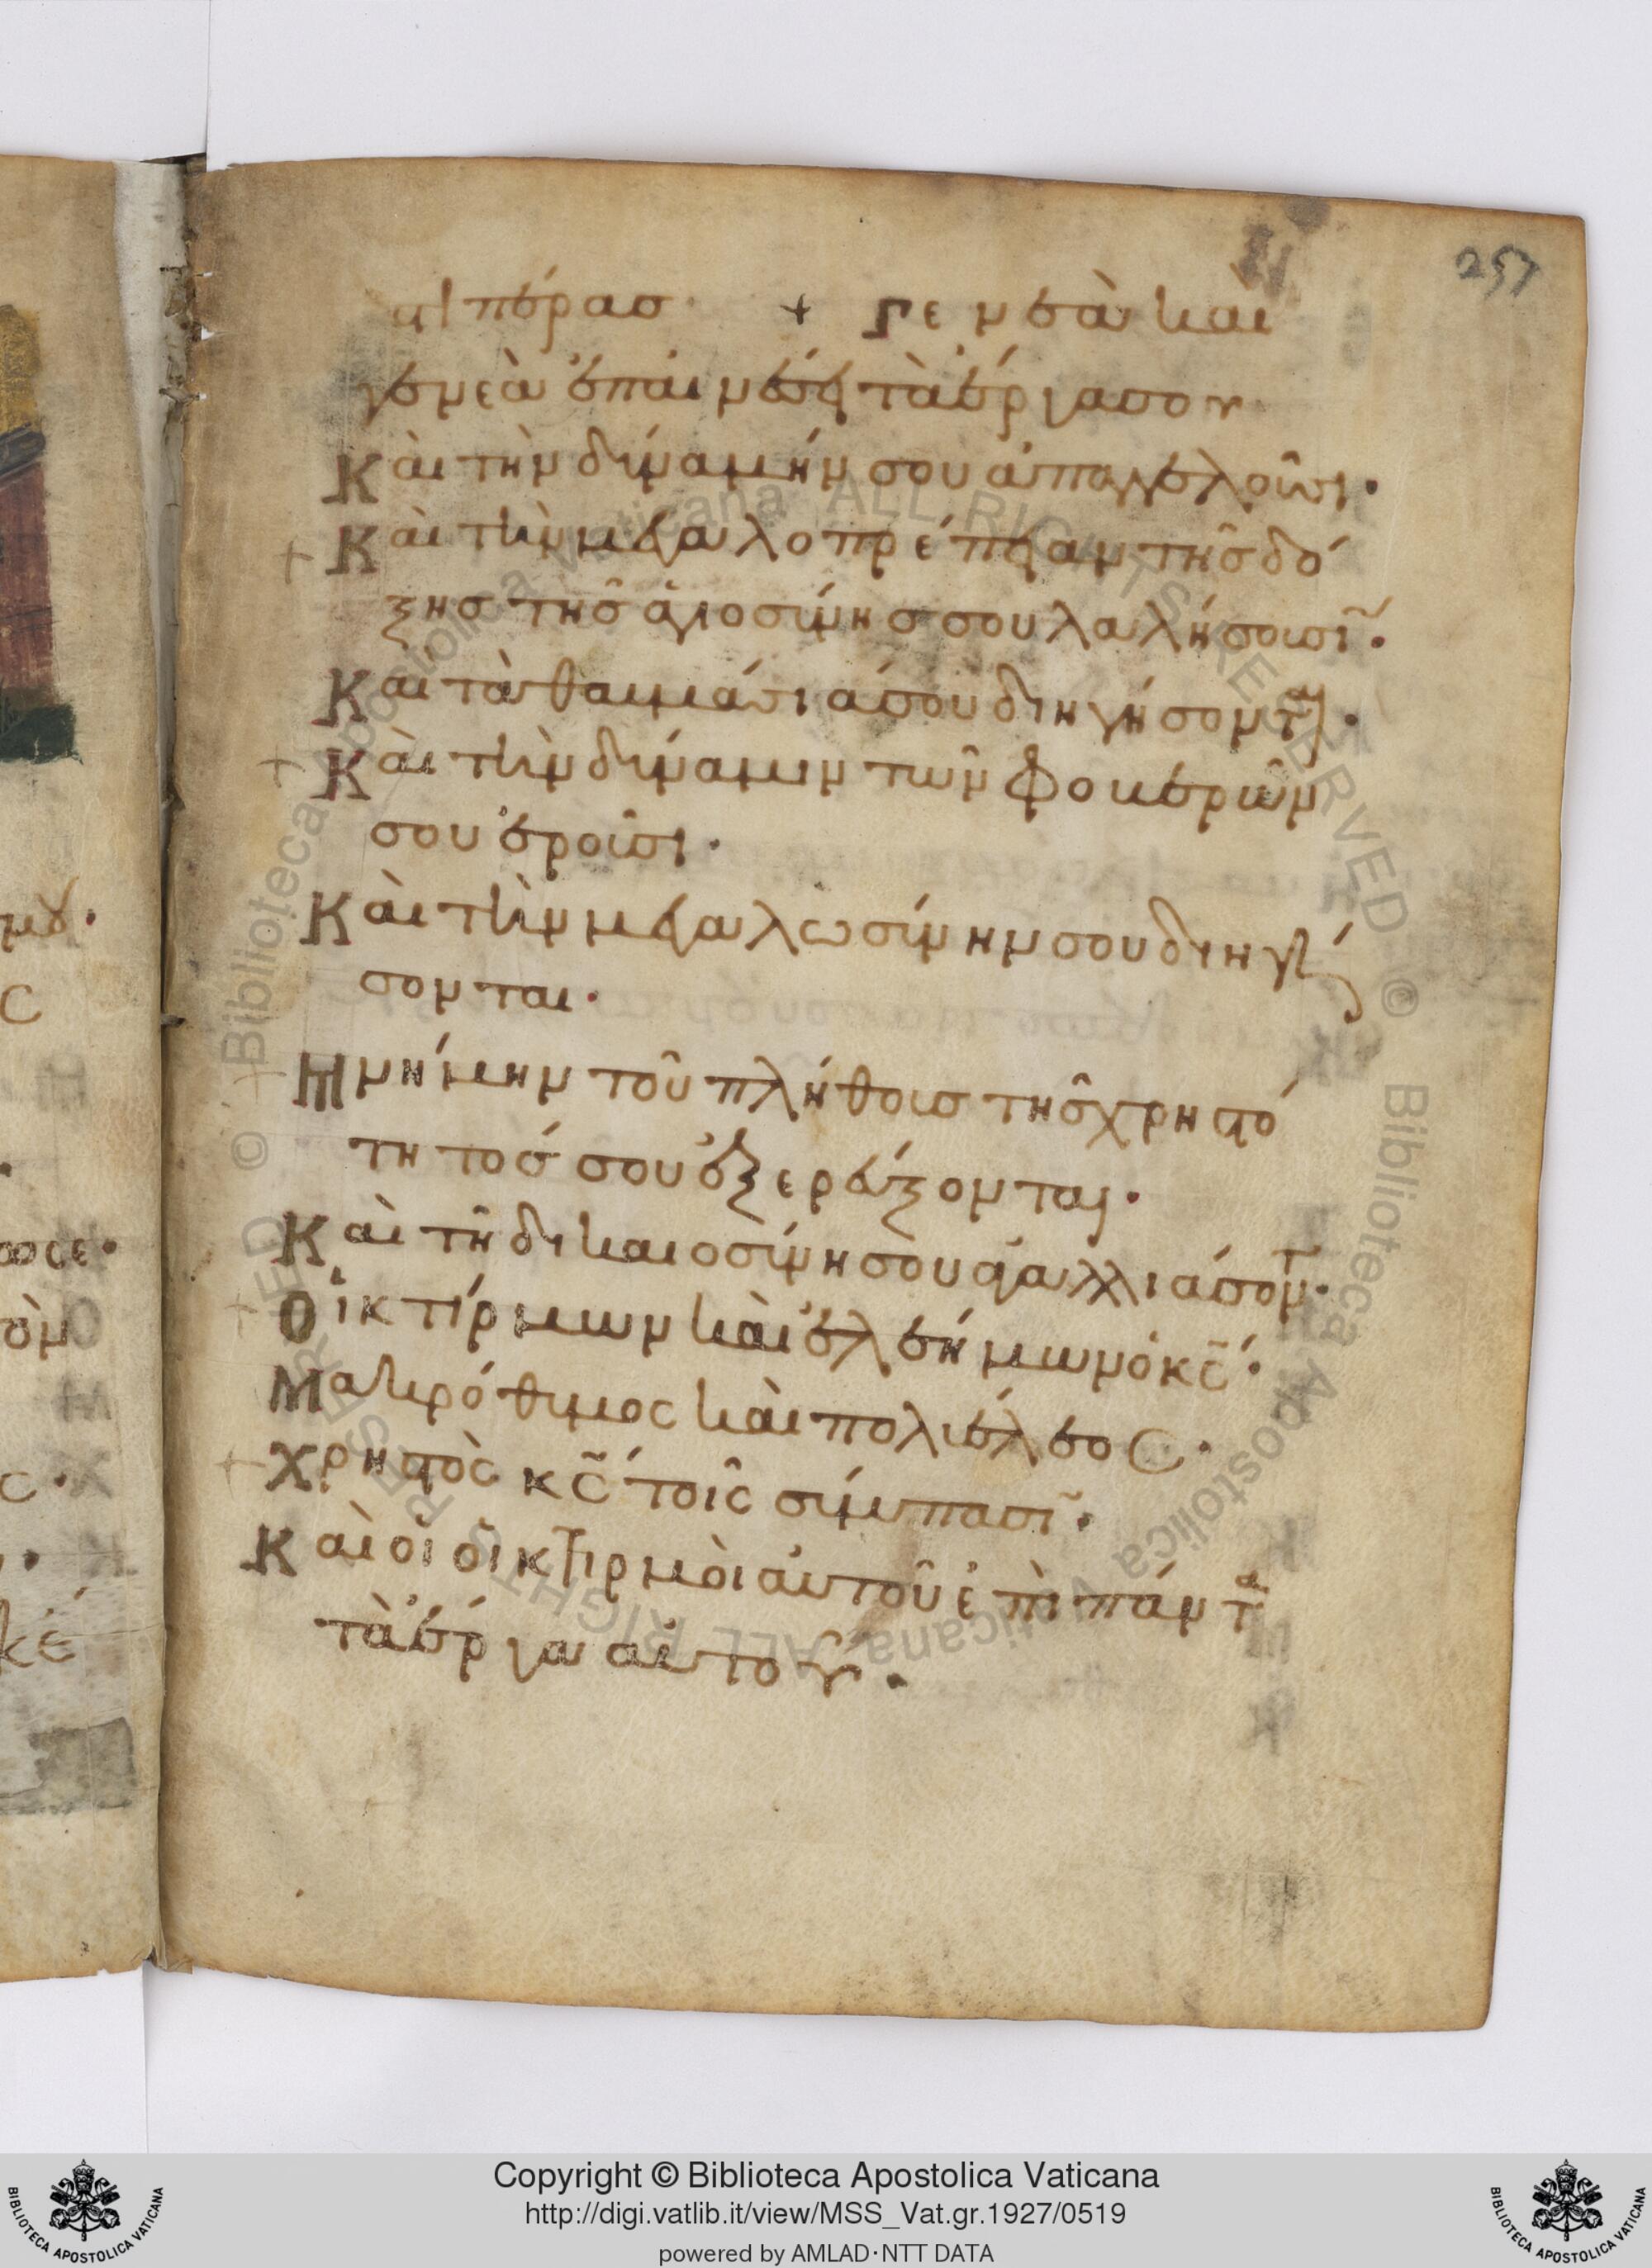 257
αι πέρας + Γενεὰ καὶ
γενεὰ ἐπαινέσει τὰ ἔργα σου
Καὶ τὴν δύναμίν σου ἀπαγγελοῦσι.
Καὶ τὴν μεγαλοπρέπειαν τῆς δό
ξης τῆς ἁγιοσύνης σου λαλήσουσι.
Καὶ τὰ θαυμάσιά σου διηγήσονται.
Καὶ τὴν δύναμιν τῶν φοβερῶν
σου ἐροῦσι.
Καὶ τὴν μεγαλωσύνην σου διηγή
σονται.
Μνήμην τοῦ πλήθους τῆς χρηστό
τητός σου ἐξερεύξονται.
Καὶ τῆ δικαιοσύνη σου ἀγαλλιάσοντ.
Οἰκτίρμων καὶ ἐλεήμων ὁ κς.
Μακρόθυμος καὶ πολυέλεος.
Χρηστὸς κς τοῖς σύμπασι.
Καὶ οἱ οἰκτιρμοὶ αὐτοῦ ἐπὶ πάντα
τὰ ἔργα αὐτοῦ.
Copyright © Biblioteca Apostolica Vaticana
http://digi.vatlib.it/view/MSS_Vat.gr.1927/0519
powered by AMLAD·NTT DATA